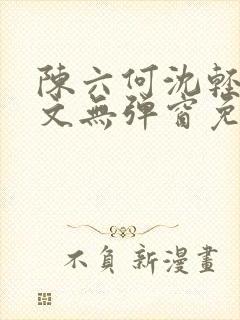 陳六何沈輕
文無彈窗免
不負新漫畫